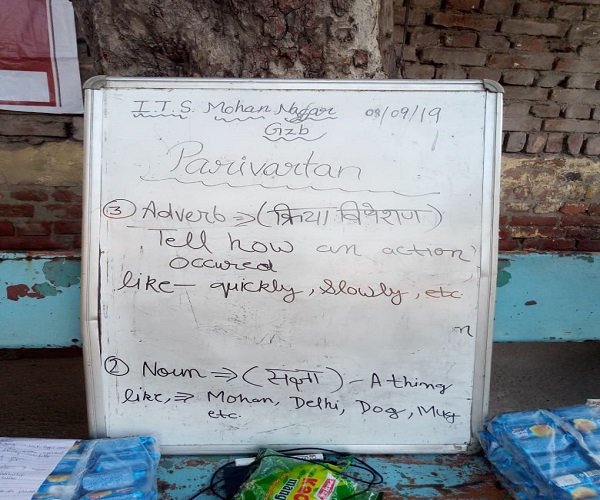 I.T.S. Mohan Nagar 08/09/19
Gzb
Parivartan
③ Adverb ⇒ (क्रिया विशेषण)
Tell how an action
occured
like — quickly, Slowly, etc
n
② Noun ⇒ (संज्ञा) - A thing
like, ⇒ Mohan, Delhi, Dog, Mug
etc.